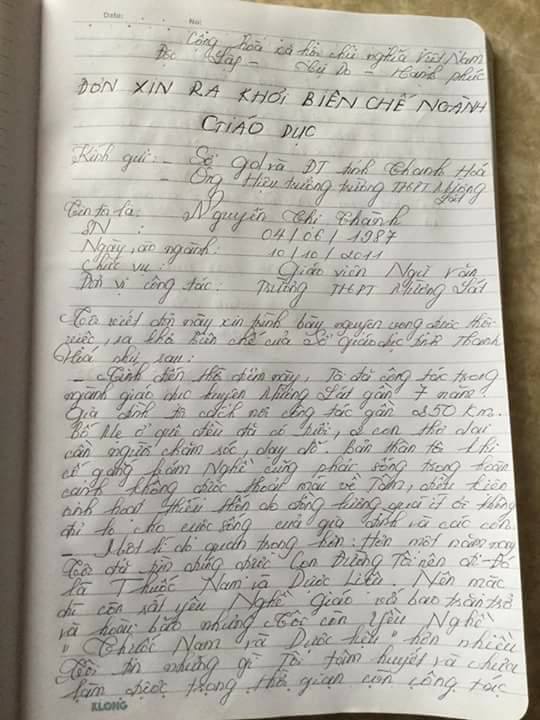 Date: No:
Cộng hoà xã hội chủ nghĩa Việt Nam
Độc lập - Tự Do - Hạnh phúc
ĐƠN XIN RA KHỎI BIÊN CHẾ NGÀNH
GIÁO DỤC
Kính gửi: - Sở gd và ĐT tỉnh Thanh Hoá
- Ông Hiệu trưởng trường THPT Mường
Lát
Tên tôi là: Nguyễn Chí Thành
SN : 04/06/1987
Ngày vào ngành: 10/10/2011
Chức vụ: Giáo viên Ngữ Văn
Đơn vị công tác: Trường THPT Mường Lát
Tôi viết đơn này xin trình bày nguyện vọng được thôi
việc, ra khỏi biên chế của Sở giáo dục tỉnh Thanh
Hoá như sau:
- Tính đến thời điểm này, Tôi đã công tác trong
ngành giáo dục huyện Mường Lát gần 7 năm.
Gia đình tôi cách nơi công tác gần 250 km.
Bố Mẹ ở quê đều đã có tuổi, 2 con thơ dại
cần người chăm sóc, dạy dỗ. Bản thân tôi khi
cố gắng bám Nghề cũng phải sống trong hoàn
cảnh không được thoải mái về Tâm, điều kiện
sinh hoạt thiếu thốn do đồng lương quá ít ỏi không
đủ lo cho cuộc sống của gia đình và các con.
- Một lí do quan trọng hơn: Hơn một năm nay
Tôi đã tìm đúng được Con Đường Tôi nên đi - Đó
là Thuốc Nam và Dược Liệu. Nên mặc
dù còn rất yêu Nghề giáo với bao trăn trở
và hoài bão nhưng Tôi còn Yêu Nghề
"Thuốc Nam và Dược liệu" hơn nhiều
Tôi tin những gì Tôi tâm huyết và chưa
làm được trong thời gian còn công tác
KLONG